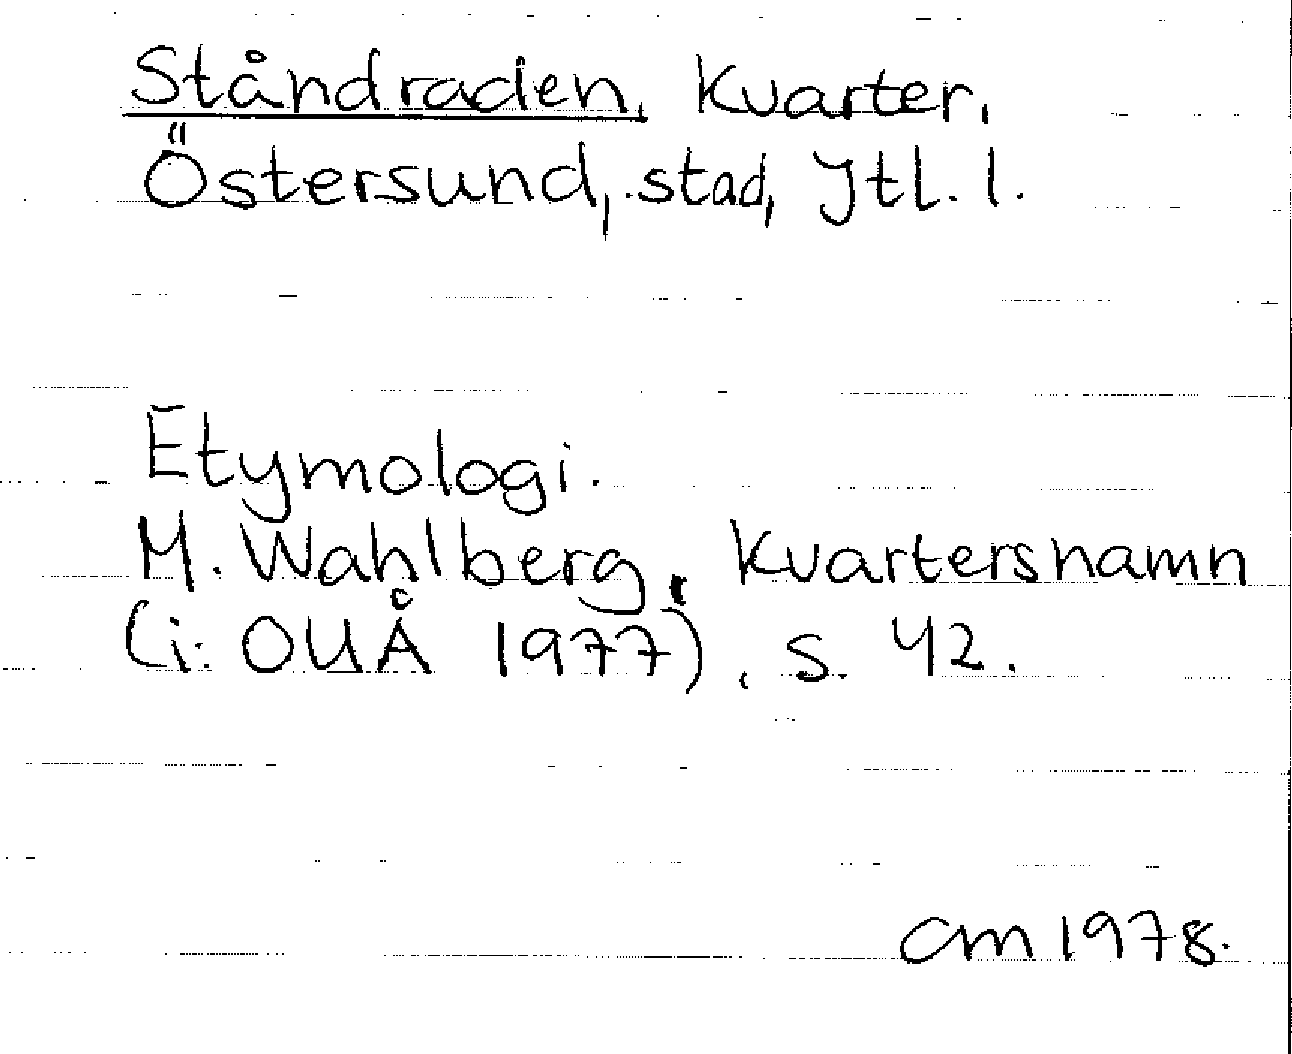 Ståndraden, kvarter,
Östersund, stad, Jtl. l.
Etymologi.
M. Wahlberg, Kvartersnamn
(i: OUÅ 1977), s. 42.
CM 1978.